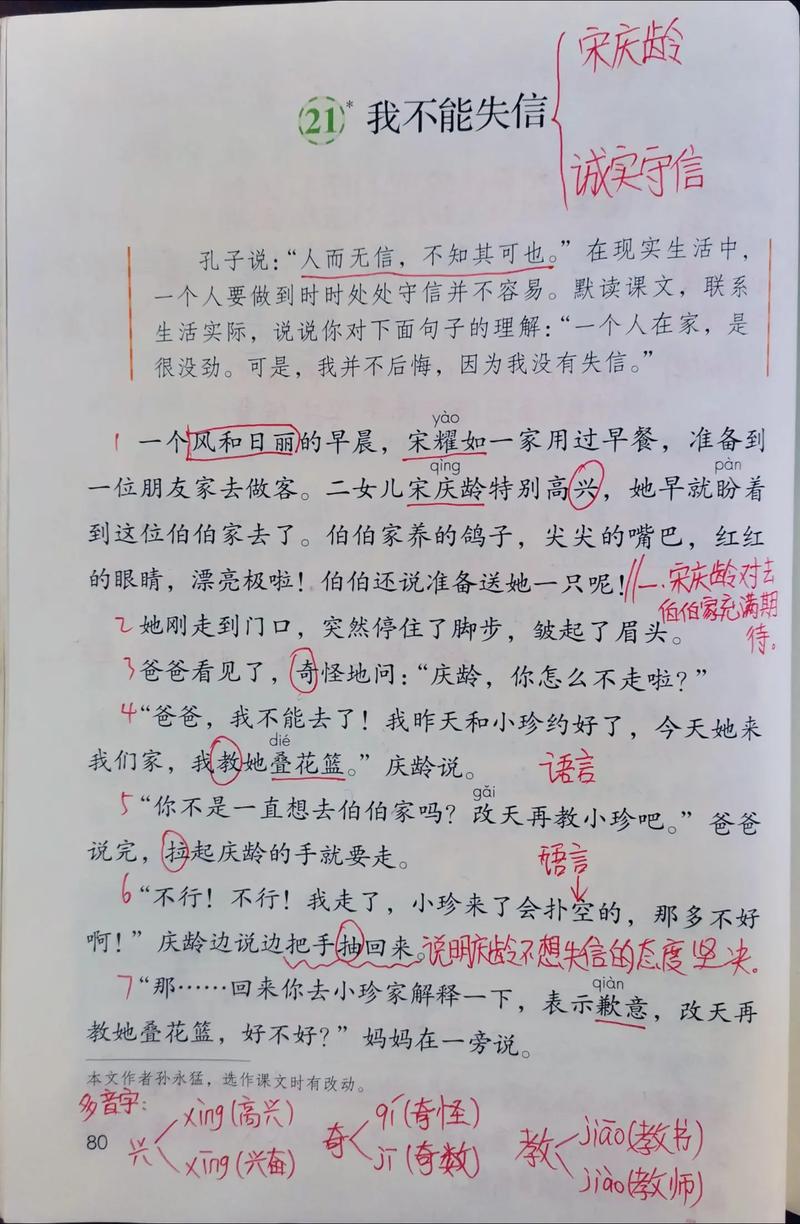 宋庆龄
21* 我不能失信
诚实守信
孔子说：“人而无信，不知其可也。”在现实生活中，
一个人要做到时时处处守信并不容易。默读课文，联系
生活实际，说说你对下面句子的理解：“一个人在家，是
很没劲。可是，我并不后悔，因为我没有失信。”
yào
1 一个风和日丽的早晨，宋耀如一家用过早餐，准备到
qìng pàn
一位朋友家去做客。二女儿宋庆龄特别高兴，她早就盼着
到这位伯伯家去了。伯伯家养的鸽子，尖尖的嘴巴，红红
的眼睛，漂亮极啦！伯伯还说准备送她一只呢！
一.宋庆龄对去
伯伯家充满期
待。
2 她刚走到门口，突然停住了脚步，皱起了眉头。
3 爸爸看见了，奇怪地问：“庆龄，你怎么不走啦？”
4 “爸爸，我不能去了！我昨天和小珍约好了，今天她来
dié
我们家，我教她叠花篮。”庆龄说。 语言
gǎi
5 “你不是一直想去伯伯家吗？改天再教小珍吧。”爸爸
说完，拉起庆龄的手就要走。 语言
6 “不行！不行！我走了，小珍来了会扑空的，那多不好
啊！”庆龄边说边把手抽回来。说明庆龄不想失信的态度坚决。
qiàn
7 “那……回来你去小珍家解释一下，表示歉意，改天再
教她叠花篮，好不好？”妈妈在一旁说。
本文作者孙永猛，选作课文时有改动。
多音字：
80
兴 xìng(高兴) xīng(兴奋)
奇 qí(奇怪) jī(奇数)
教 jiāo(教书) jiào(教师)